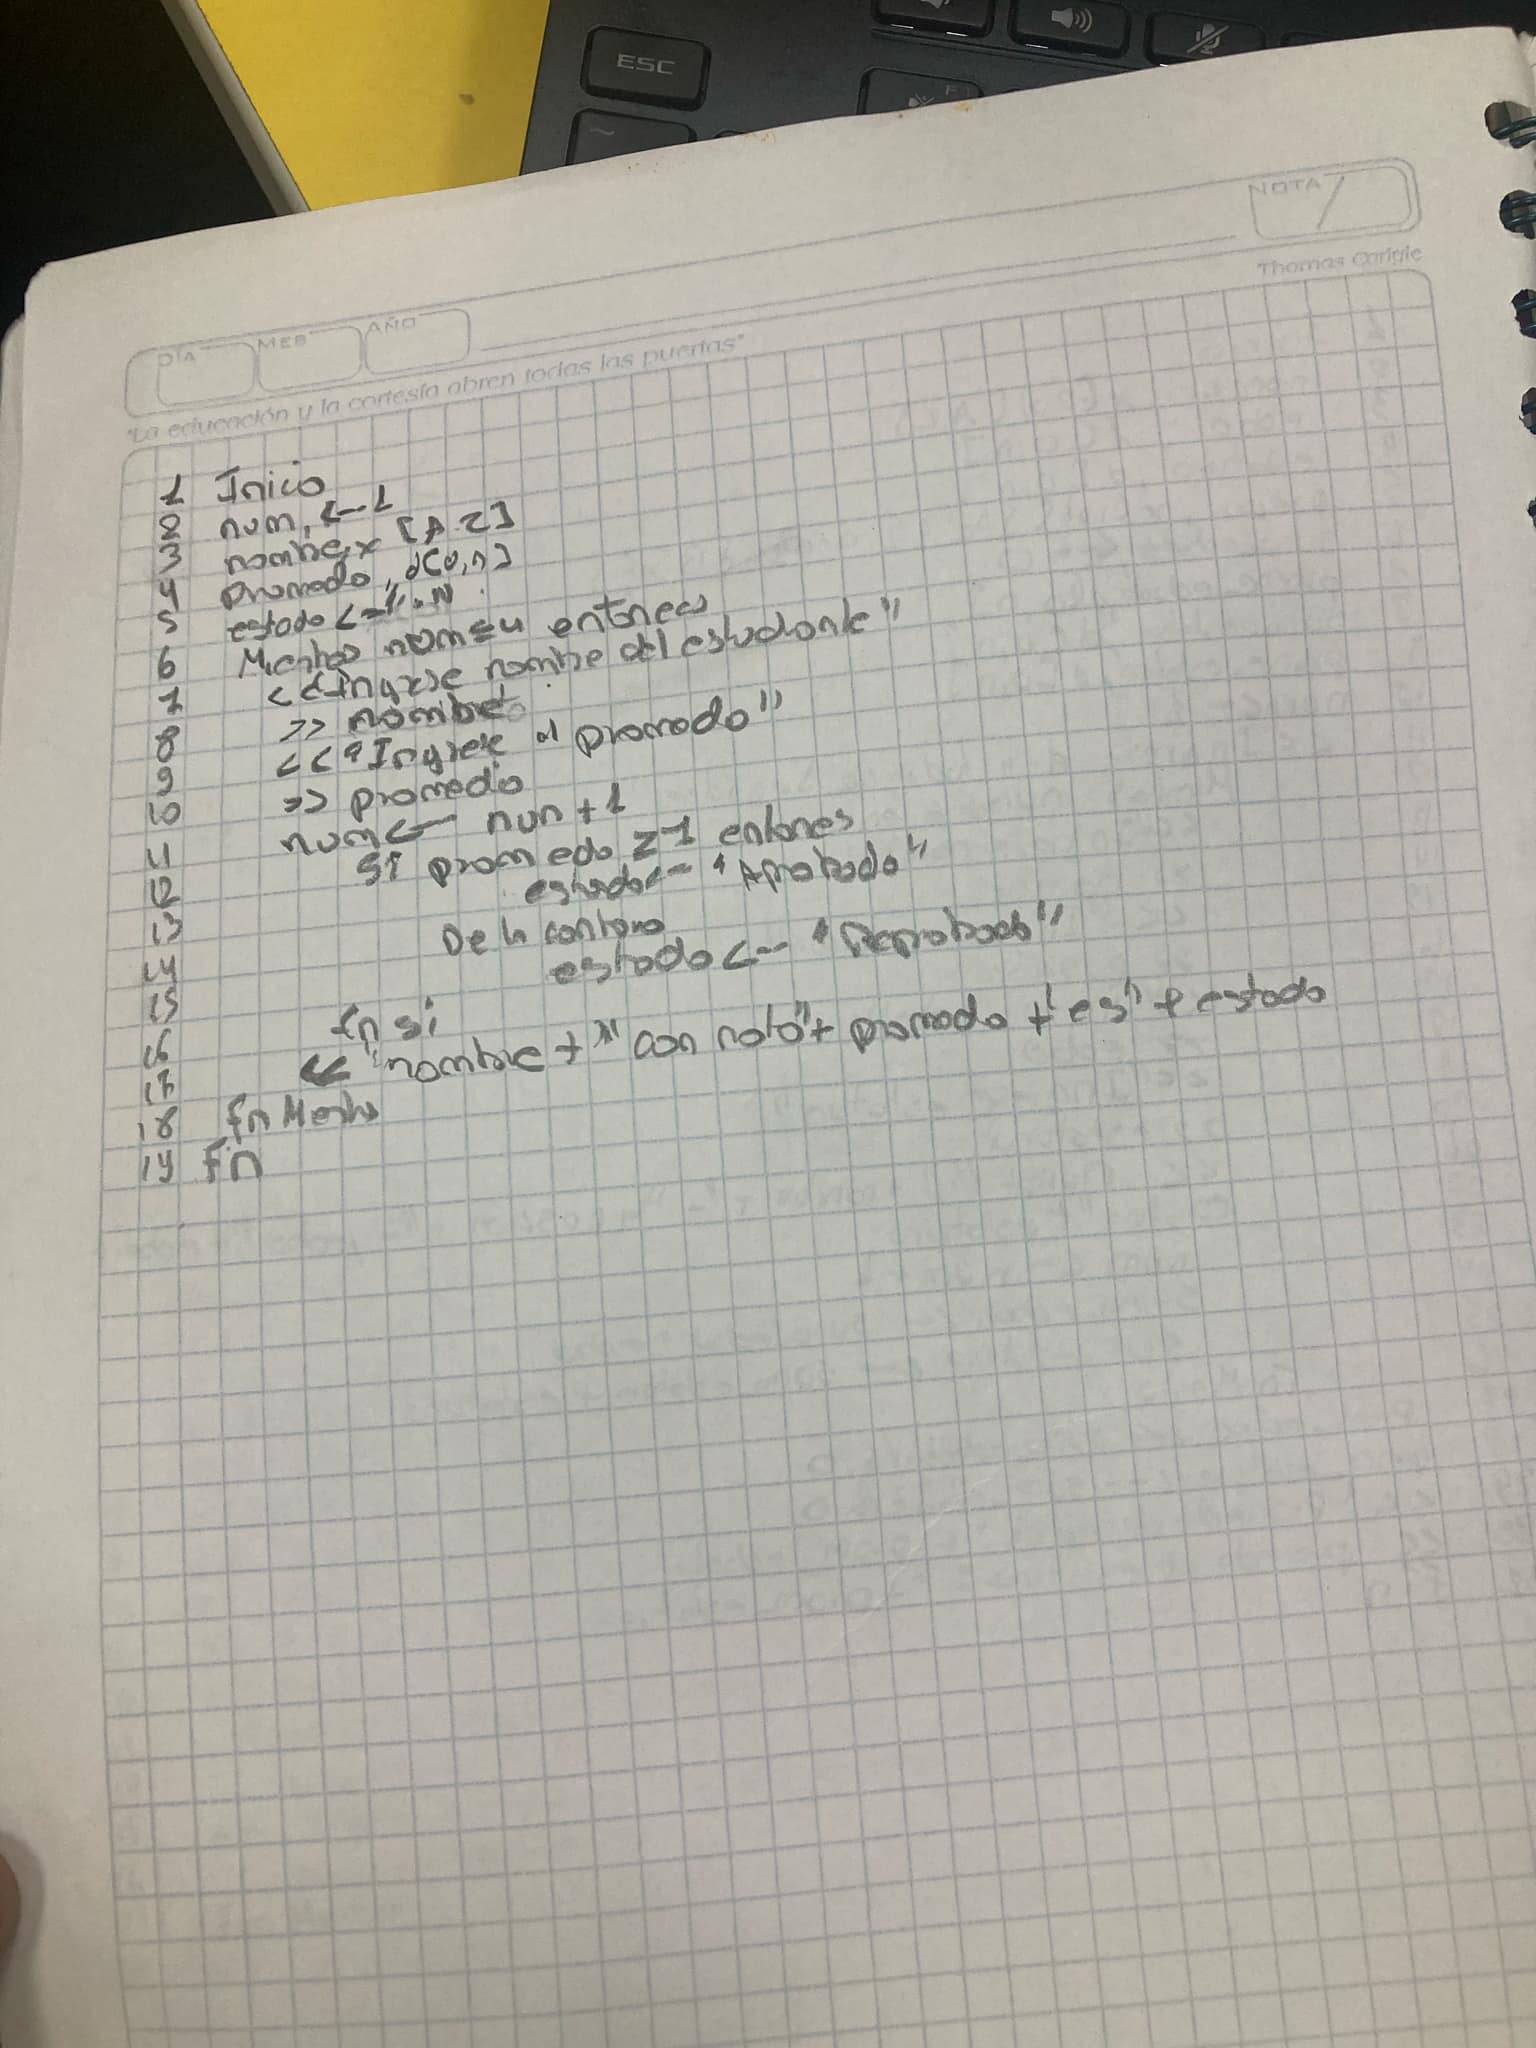 ESC
F
~
NOTA
Thomas Carlyle
DÍA MES AÑO
"La educación y la cortesía abren todas las puertas"
1 Inicio
2 num, <-- 1
3 nombre, x [A Z]
4 Promedo, d[0,n]
5 estado <-
6 Mientras num ≤ 4 entonces
7 << "Ingrese nombre del estudiante"
8 >> nombre
9 << "Ingrese el promedo"
10 >> promedio
11 num <-- num + 1
12 Si promedo entones
13 estado <-- "Aprobado"
14 De lo contraro
15 estado <-- "Reprobado"
16 fn si
17 << nombre + " con nota" + promedo + " es" + estado
18 fn Mentras
19 Fin